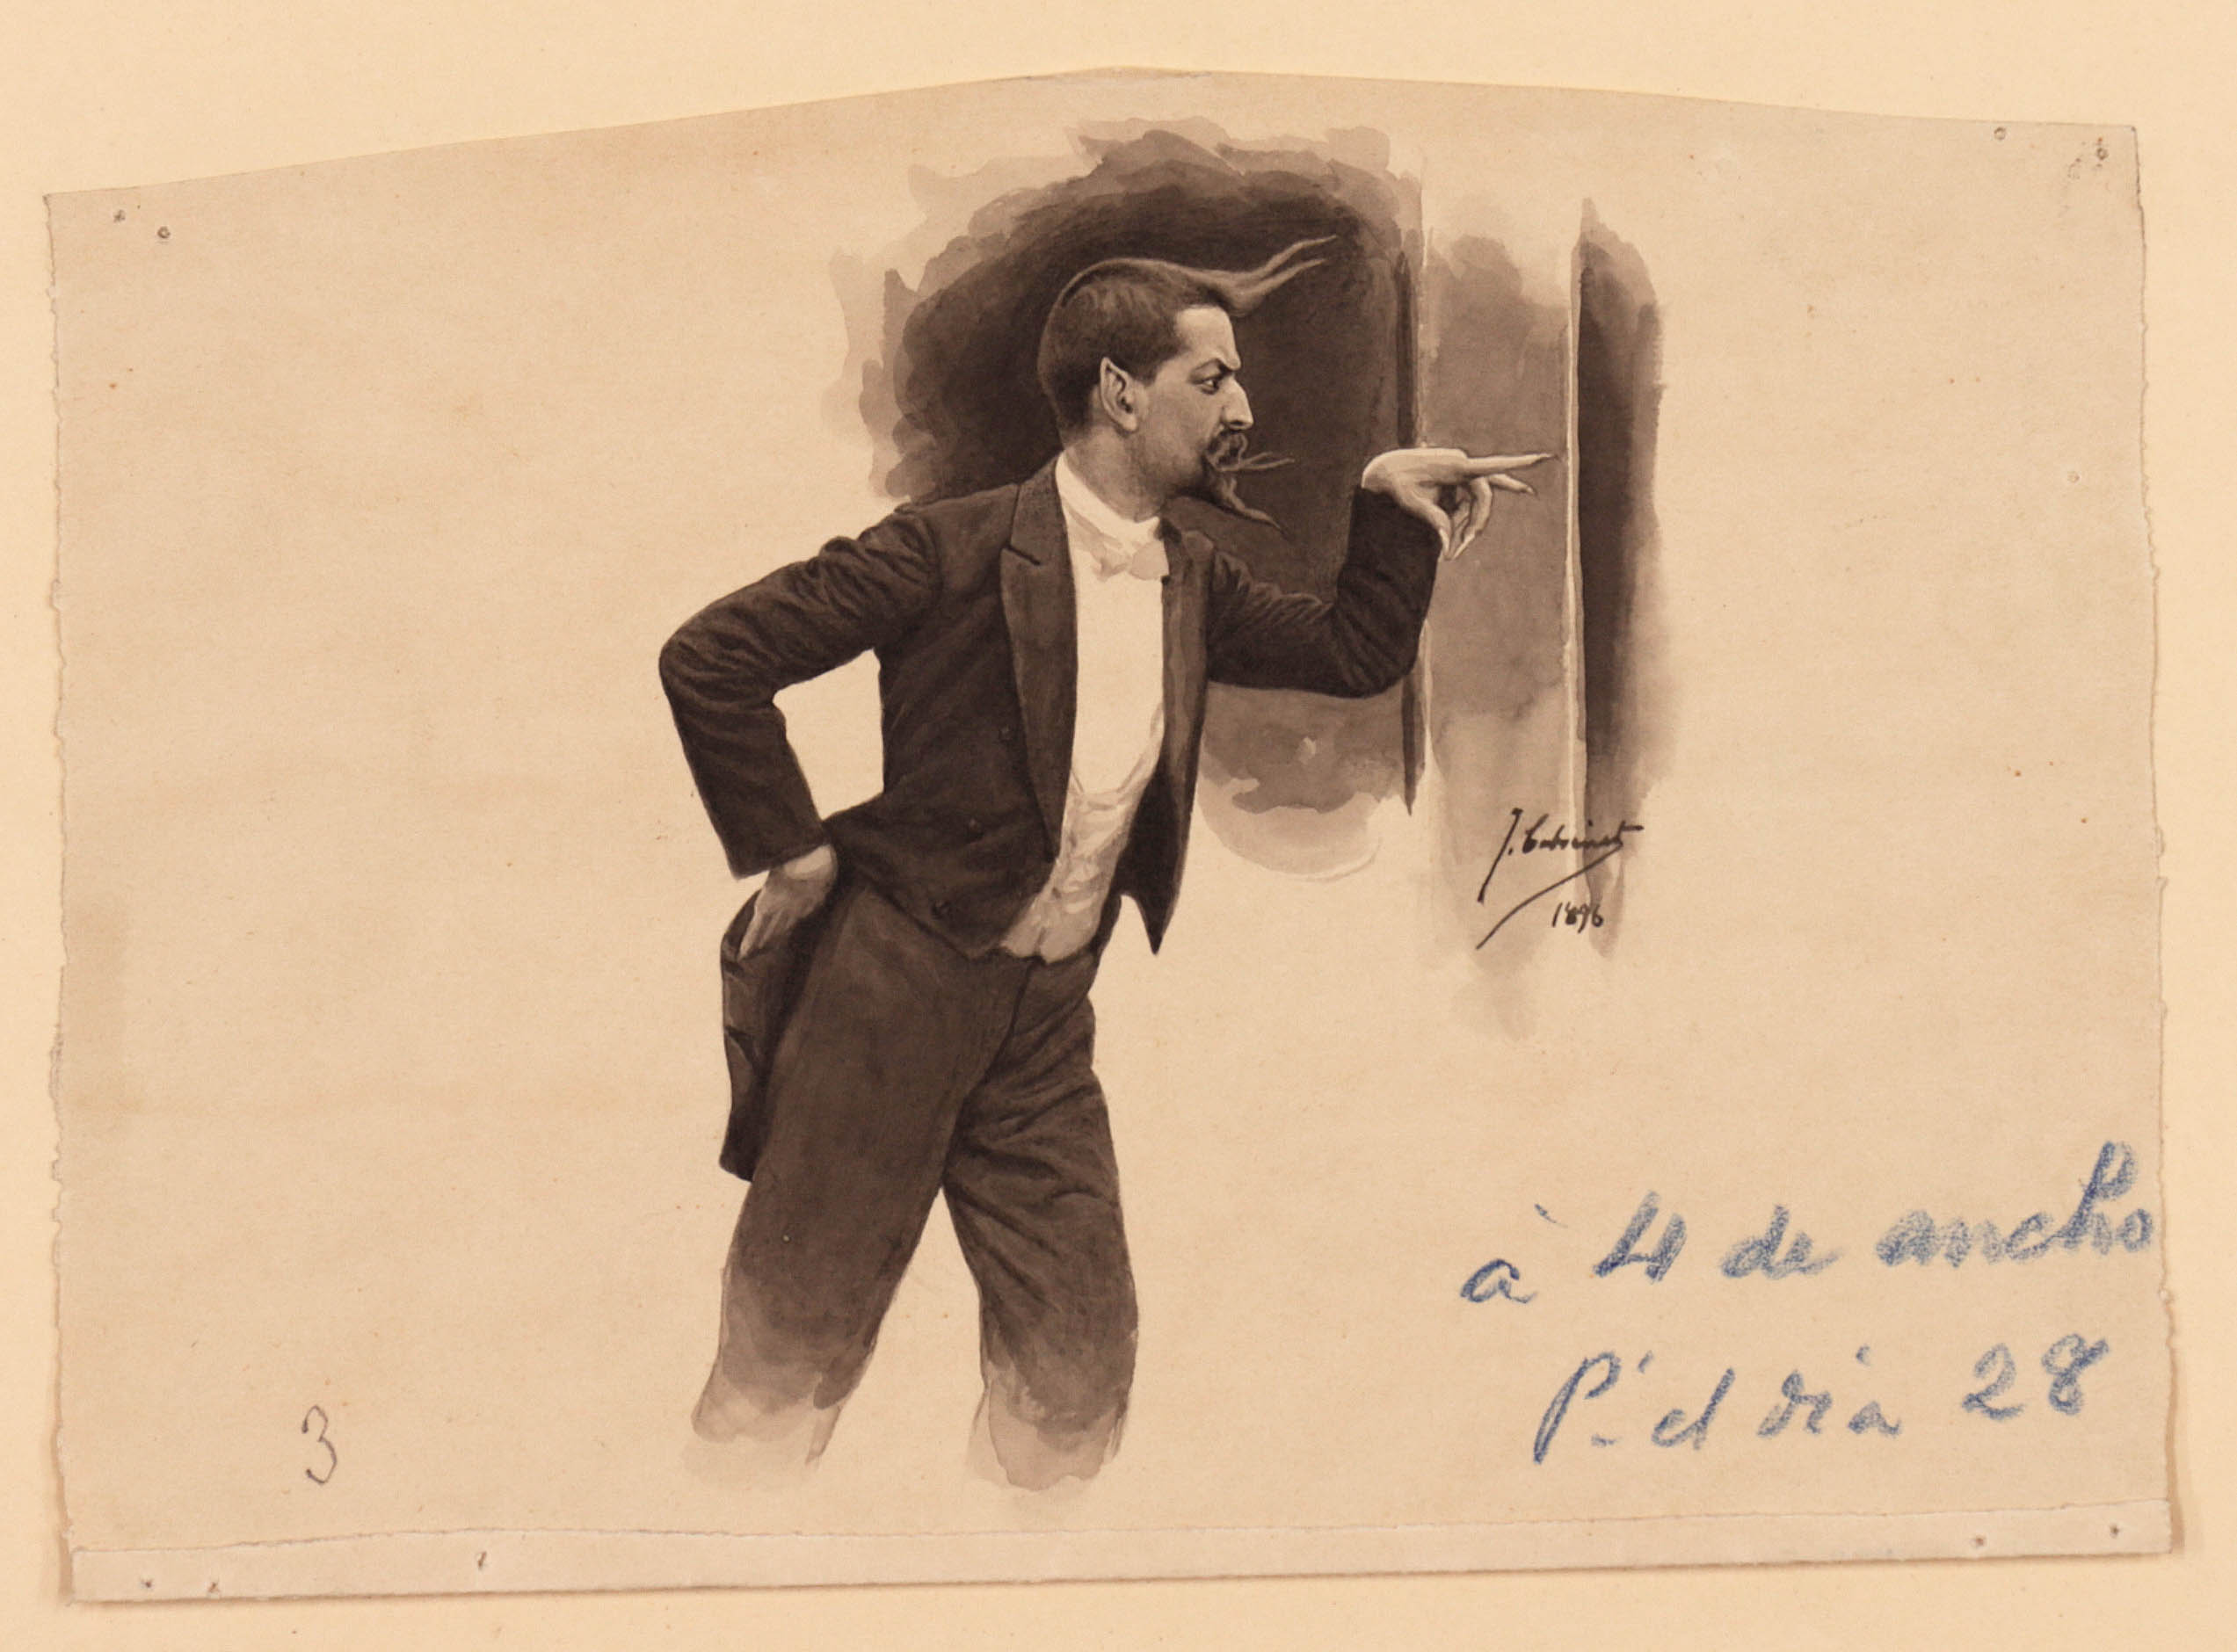 J. Cabrinety
1896
à 4 de ancho
P. el día 28
3